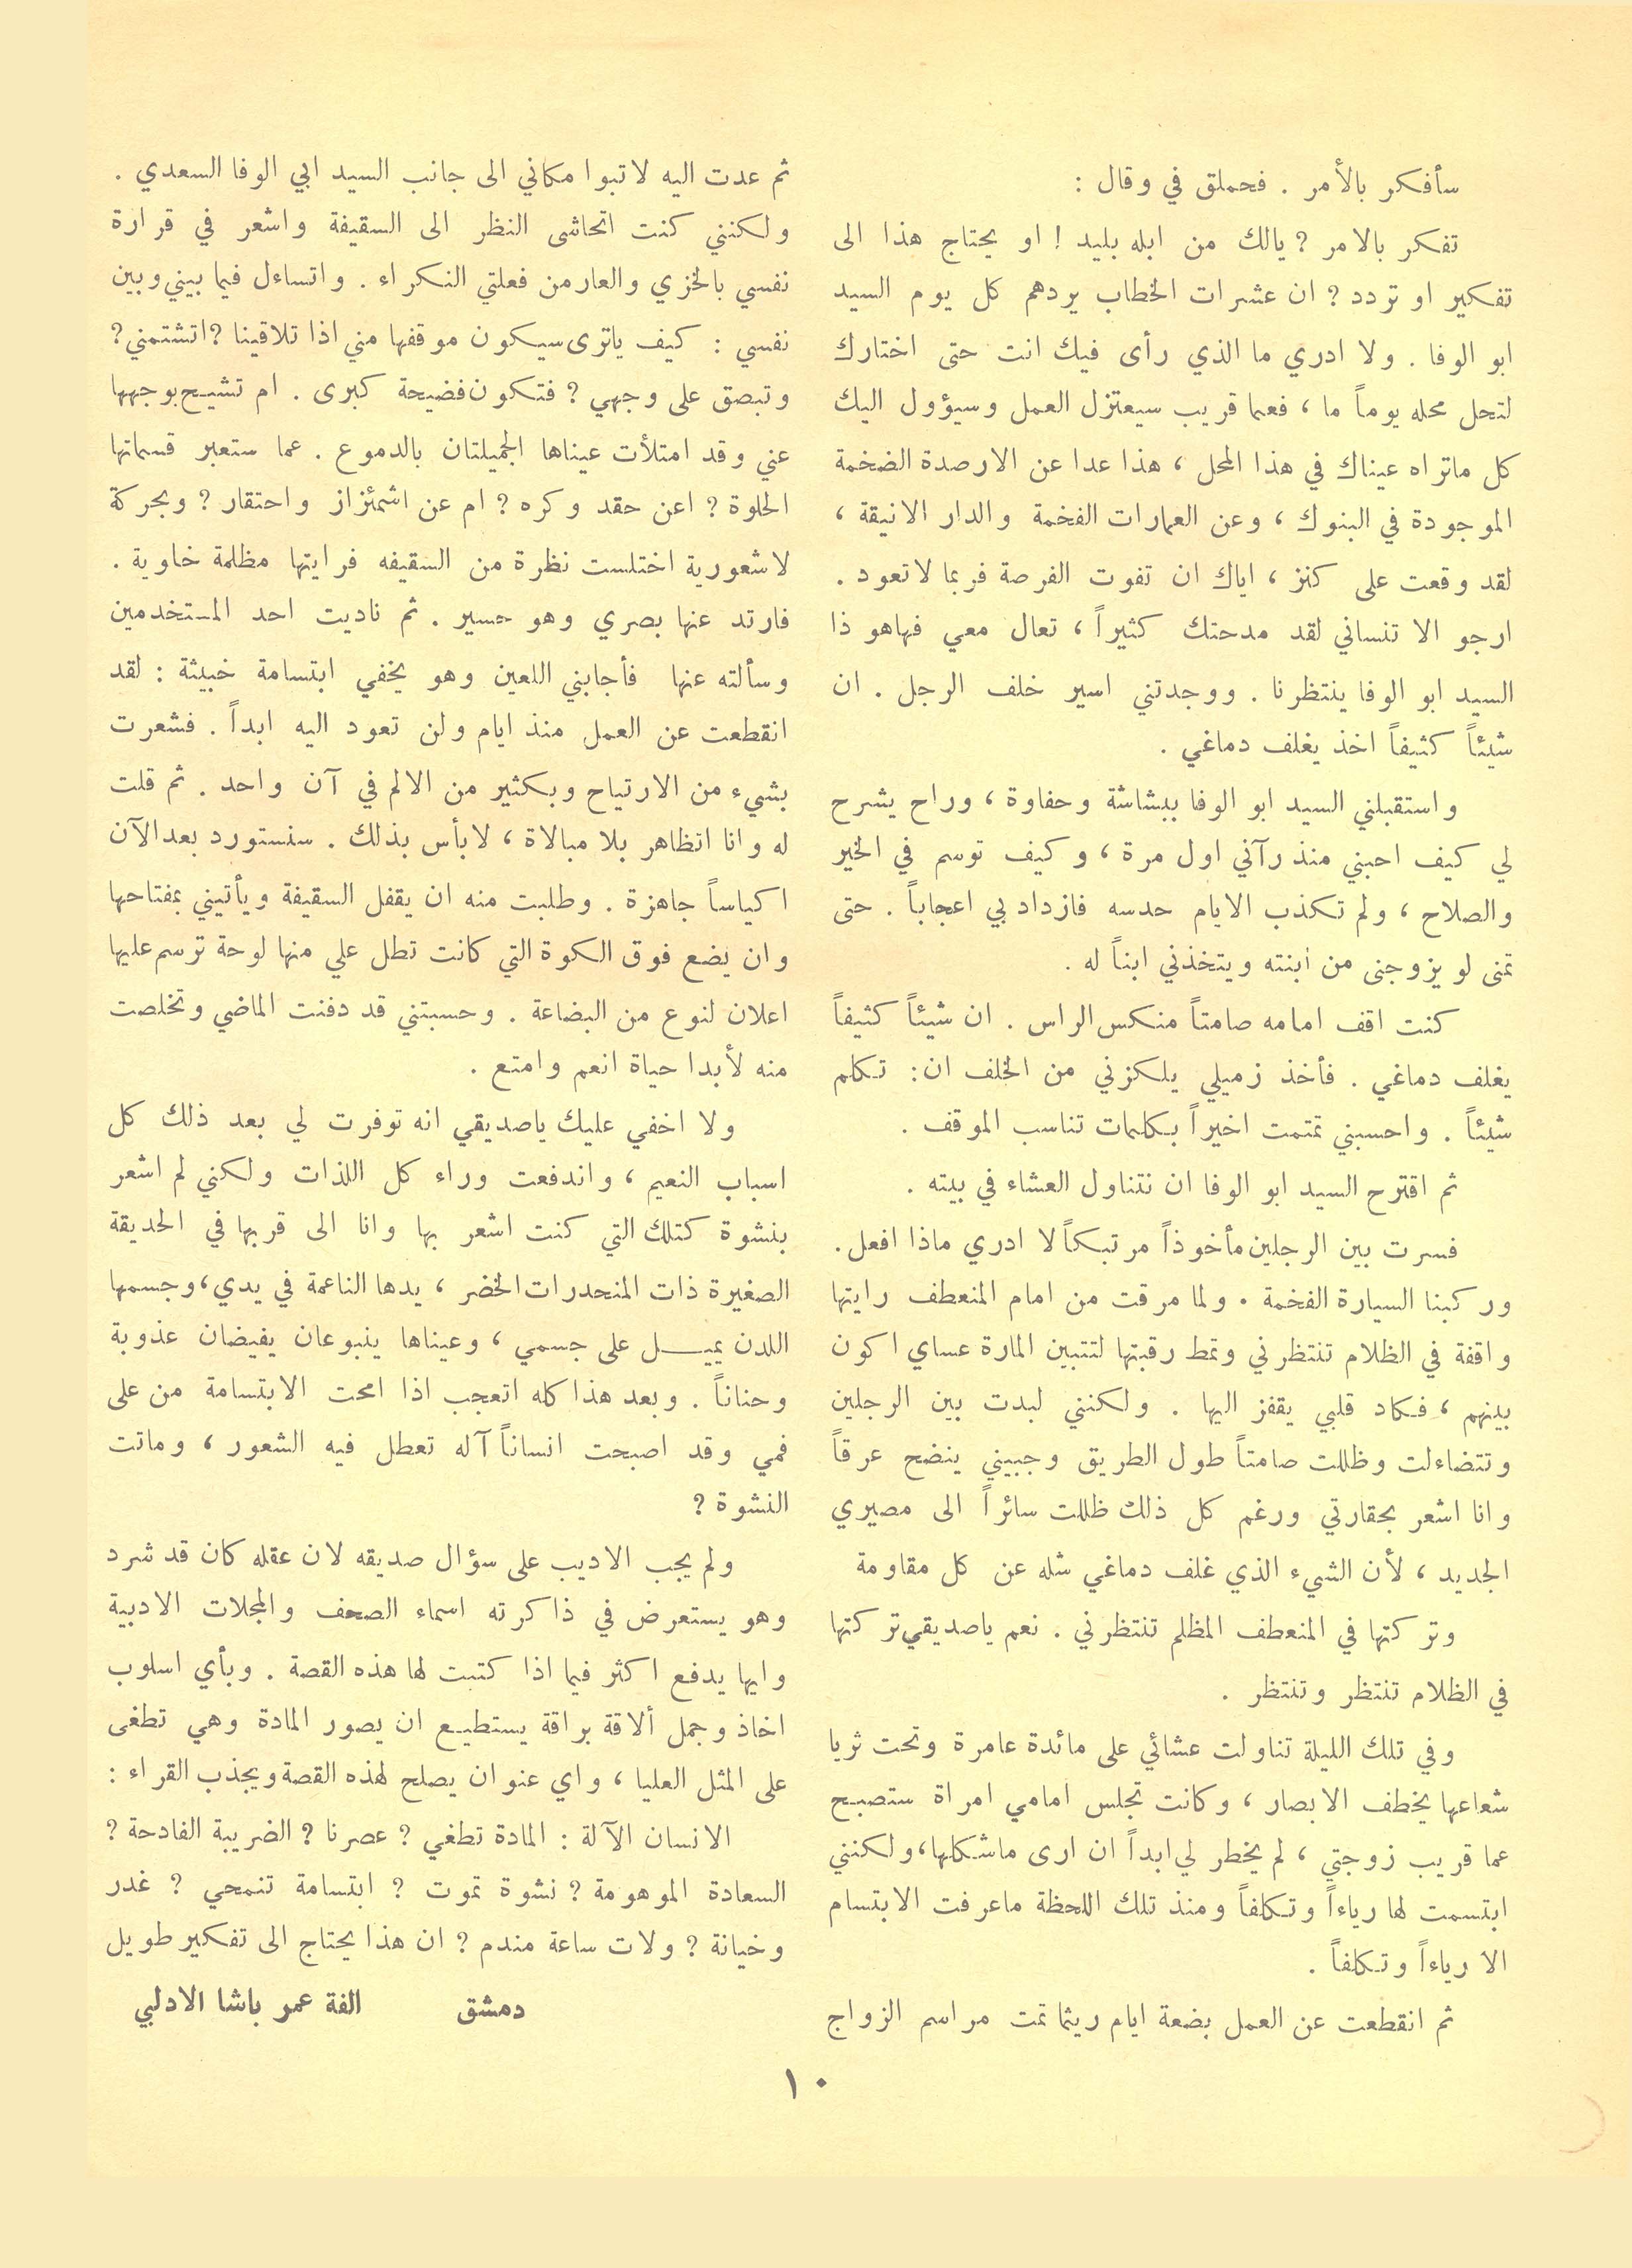 سأفكر بالأمر . فحملق في وقال :
تفكر بالامر ? يالك من ابله بليد ! او يحتاج هذا الى
تفكير او تردد ? ان عشرات الخطاب يردهم كل يوم السيد
ابو الوفا . ولا ادري ما الذي رأى فيك انت حتى اختارك
لتحل محله يوماً ما ، فعما قريب سيعتزل العمل وسيؤول اليك
كل ماتراه عيناك في هذا المحل ، هذا عدا عن الارصدة الضخمة
الموجودة في البنوك ، وعن العمارات الفخمة والدار الانيقة ،
لقد وقعت على كنز ، اياك ان تفوت الفرصة فربما لاتعود .
ارجو الا تنساني لقد مدحتك كثيراً ، تعال معي فهاهو ذا
السيد ابو الوفا ينتظرنا . ووجدتني اسير خلف الرجل . ان
شيئاً كثيفاً اخذ يغلف دماغي .
واستقبلني السيد ابو الوفا ببشاشة وحفاوة ، وراح يشرح
لي كيف احبني منذ رآني اول مرة ، وكيف توسم في الخير
والصلاح ، ولم تكذب الايام حدسه فازداد بي اعجاباً . حتى
تمنى لو يزوجنى من أبنته ويتخذني ابناً له .
كنت اقف امامه صامتاً منكس الراس . ان شيئاً كثيفاً
يغلف دماغي . فأخذ زميلي يلكزني من الخلف ان : تكلم
شيئاً . واحسبني تمتمت اخيراً بكلمات تناسب الموقف .
ثم اقترح السيد ابو الوفا ان نتناول العشاء في بيته .
فسرت بين الرجلين مأخوذاً مرتبكاً لا ادري ماذا افعل .
وركبنا السيارة الفخمة . ولما مرقت من امام المنعطف رايتها
واقفة في الظلام تنتظرني وتمط رقبتها لتتبين المارة عساي اكون
بينهم ، فكاد قلبي يقفز اليها . ولكنني لبدت بين الرجلين
وتتضاءلت وظللت صامتاً طول الطريق وجبيني ينضح عرقاً
وانا اشعر بحقارتي ورغم كل ذلك ظللت سائراً الى مصيري
الجديد ، لأن الشيء الذي غلف دماغي شله عن كل مقاومة
وتركتها في المنعطف المظلم تنتظرني . نعم ياصديقي تركتها
في الظلام تنتظر وتنتظر .
وفي تلك الليلة تناولت عشائي على مائدة عامرة وتحت ثريا
شعاعها يخطف الابصار ، وكانت تجلس امامي امراة ستصبح
عما قريب زوجتي ، لم يخطر لي ابداً ان ارى ماشكلها ، ولكنني
ابتسمت لها رياءاً وتكلفاً ومنذ تلك اللحظة ماعرفت الابتسام
الا رياءاً وتكلفاً .
ثم انقطعت عن العمل بضعة ايام ريثما تمت مراسم الزواج
ثم عدت اليه لاتبوا مكاني الى جانب السيد ابي الوفا السعدي .
ولكنني كنت اتحاشى النظر الى السقيفة واشعر في قرارة
نفسي بالخزي والعار من فعلتي النكراء . واتساءل فيما بيني وبين
نفسي : كيف ياترى سيكون موقفها مني اذا تلاقينا ? اتشتمني ?
وتبصق على وجهي ? فتكون فضيحة كبرى . ام تشيح بوجهها
عني وقد امتلأت عيناها الجميلتان بالدموع . عما ستعبر قسماتها
الحلوة ? اعن حقد وكره ? ام عن اشمئزاز واحتقار ? وبحركة
لاشعورية اختلست نظرة من السقيفه فرايتها مظلمة خاوية .
فارتد عنها بصري وهو حسير . ثم ناديت احد المستخدمين
وسألته عنها فأجابني اللعين وهو يخفي ابتسامة خبيثة : لقد
انقطعت عن العمل منذ ايام ولن تعود اليه ابداً . فشعرت
بشيء من الارتياح وبكثير من الالم في آن واحد . ثم قلت
له وانا اتظاهر بلا مبالاة ، لابأس بذلك . سنستورد بعد الآن
اكياساً جاهزة . وطلبت منه ان يقفل السقيفة ويأتيني بمفتاحها
وان يضع فوق الكوة التي كانت تطل علي منها لوحة ترسم عليها
اعلان لنوع من البضاعة . وحسبتني قد دفنت الماضي وتخلصت
منه لأبدا حياة انعم وامتع .
ولا اخفي عليك ياصديقي انه توفرت لي بعد ذلك كل
اسباب النعيم ، واندفعت وراء كل اللذات ولكني لم اشعر
بنشوة كتلك التي كنت اشعر بها وانا الى قربها في الحديقة
الصغيرة ذات المنحدرات الخضر ، يدها الناعمة في يدي ، وجسمها
اللدن يميل على جسمي ، وعيناها ينبوعان يفيضان عذوبة
وحناناً . وبعد هذا كله اتعجب اذا امحت الابتسامة من على
فمي وقد اصبحت انساناً آله تعطل فيه الشعور ، وماتت
النشوة ?
ولم يجب الاديب على سؤال صديقه لان عقله كان قد شرد
وهو يستعرض في ذاكرته اسماء الصحف والمجلات الادبية
وايها يدفع اكثر فيما اذا كتبت لها هذه القصة . وبأي اسلوب
اخاذ وجمل ألاقة براقة يستطيع ان يصور المادة وهي تطغى
على المثل العليا ، واي عنوان يصلح لهذه القصة ويجذب القراء :
الانسان الآلة : المادة تطغي ? عصرنا ? الضريبة الفادحة ?
السعادة الموهومة ? نشوة تموت ? ابتسامة تنمحي ? غدر
وخيانة ? ولات ساعة مندم ? ان هذا يحتاج الى تفكير طويل
دمشق الفة عمر باشا الادلبي
١٠